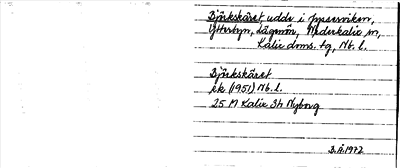 Björkskäret udde i Jggesviken,
Ytterbyn, Lågmön, Nederkalix sn,
Kalix doms. tg, Nb. l.
Björkskäret
ek (1951) Nb. l.
25 M Kalix Sh Nyborg
B.Å. 1972